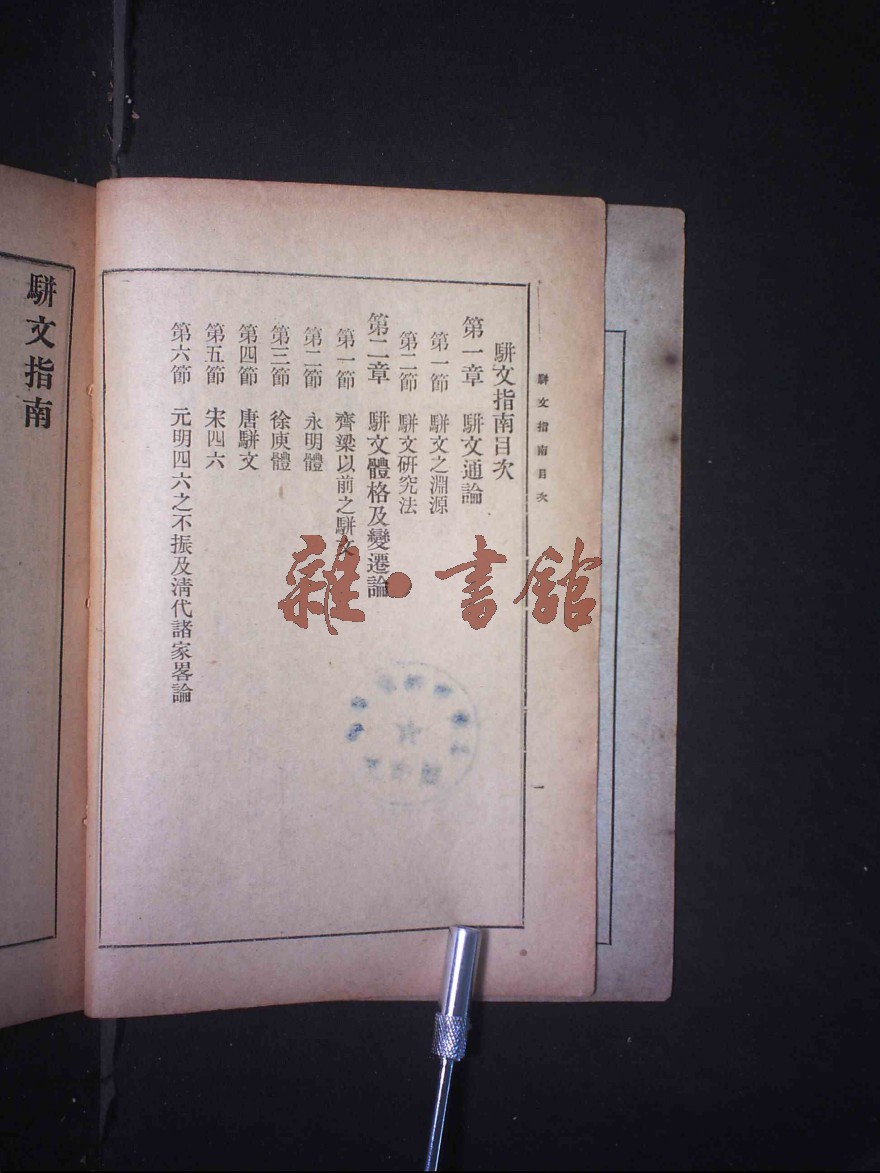 駢文指南目次
駢文指南目次
第一章　駢文通論
第一節　駢文之淵源
第二節　駢文研究法
第二章　駢文體格及變遷論
第一節　齊梁以前之駢文
第二節　永明體
第三節　徐庾體
第四節　唐駢文
第五節　宋四六
第六節　元明四六之不振及淸代諸家畧論
一
駢文指南
雜·書館